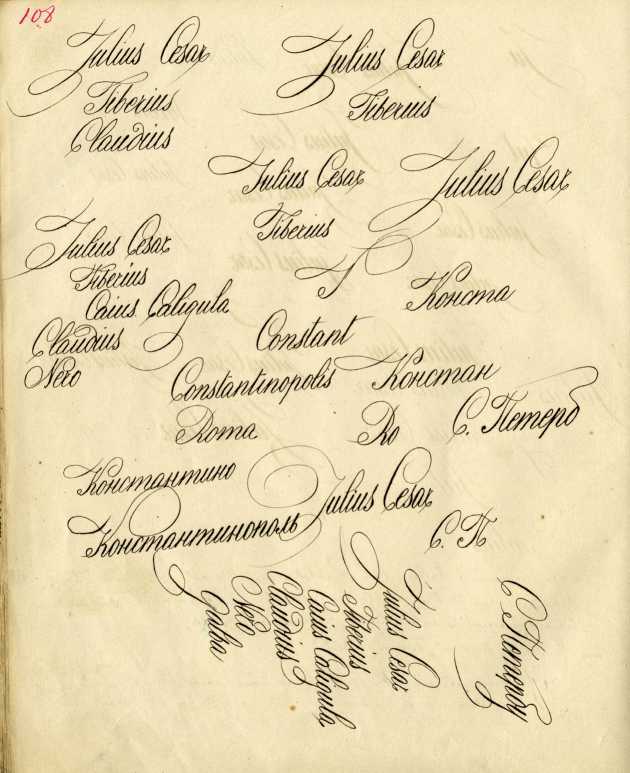 108
Julius Cesar
Julius Cesar
Tiberius
Tiberius
Claudius
Julius Cesar
Julius Cesar
Tiberius
Julius Cesar
Tiberius
Caius Caligula
J
Конста
Claudius
Constant
Nero
Constantinopolis
Констан
Roma
Ro
С. Петерб
Константино
Julius Cesar
Константинополь
С. П
Julius Cesar
Tiberius
Caius Caligula
Claudius
Nero
Galba
С. Петербу